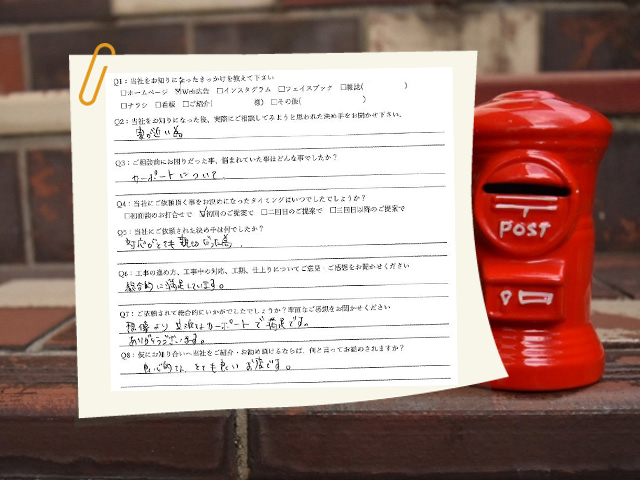 Q1：当社をお知りになったきっかけを教えて下さい
□ホームページ ☑Web広告 □インスタグラム □フェイスブック □雑誌( )
□チラシ □看板 □ご紹介( 様) □その他( )
Q2：当社をお知りになった後、実際にご相談してみようと思われた決め手をお聞かせ下さい。
家が近い為
Q3：ご相談前にお困りだった事、悩まれていた事はどんな事でしたか？
カーポートについて
Q4：当社にご依頼頂く事をお決めになったタイミングはいつでしたでしょうか？
□初回面談のお打合せで ☑初回のご提案で □二回目のご提案で □三回目以降のご提案で
Q5：当社にご依頼された決め手は何でしたか？
対応がとても親切な為
Q6：工事の進め方、工事中の対応、工期、仕上りについてご意見・ご感想をお聞かせください
総合的に満足しています。
Q7：ご依頼されて総合的にいかがでしたでしょうか？率直なご感想をお聞かせください
想像より立派なカーポートで満足です。
ありがとうございます。
Q8：仮にお知り合いへ当社をご紹介・お勧め頂けるならば、何と言ってお勧めされますか？
良心的で、とても良いお店です。
POST